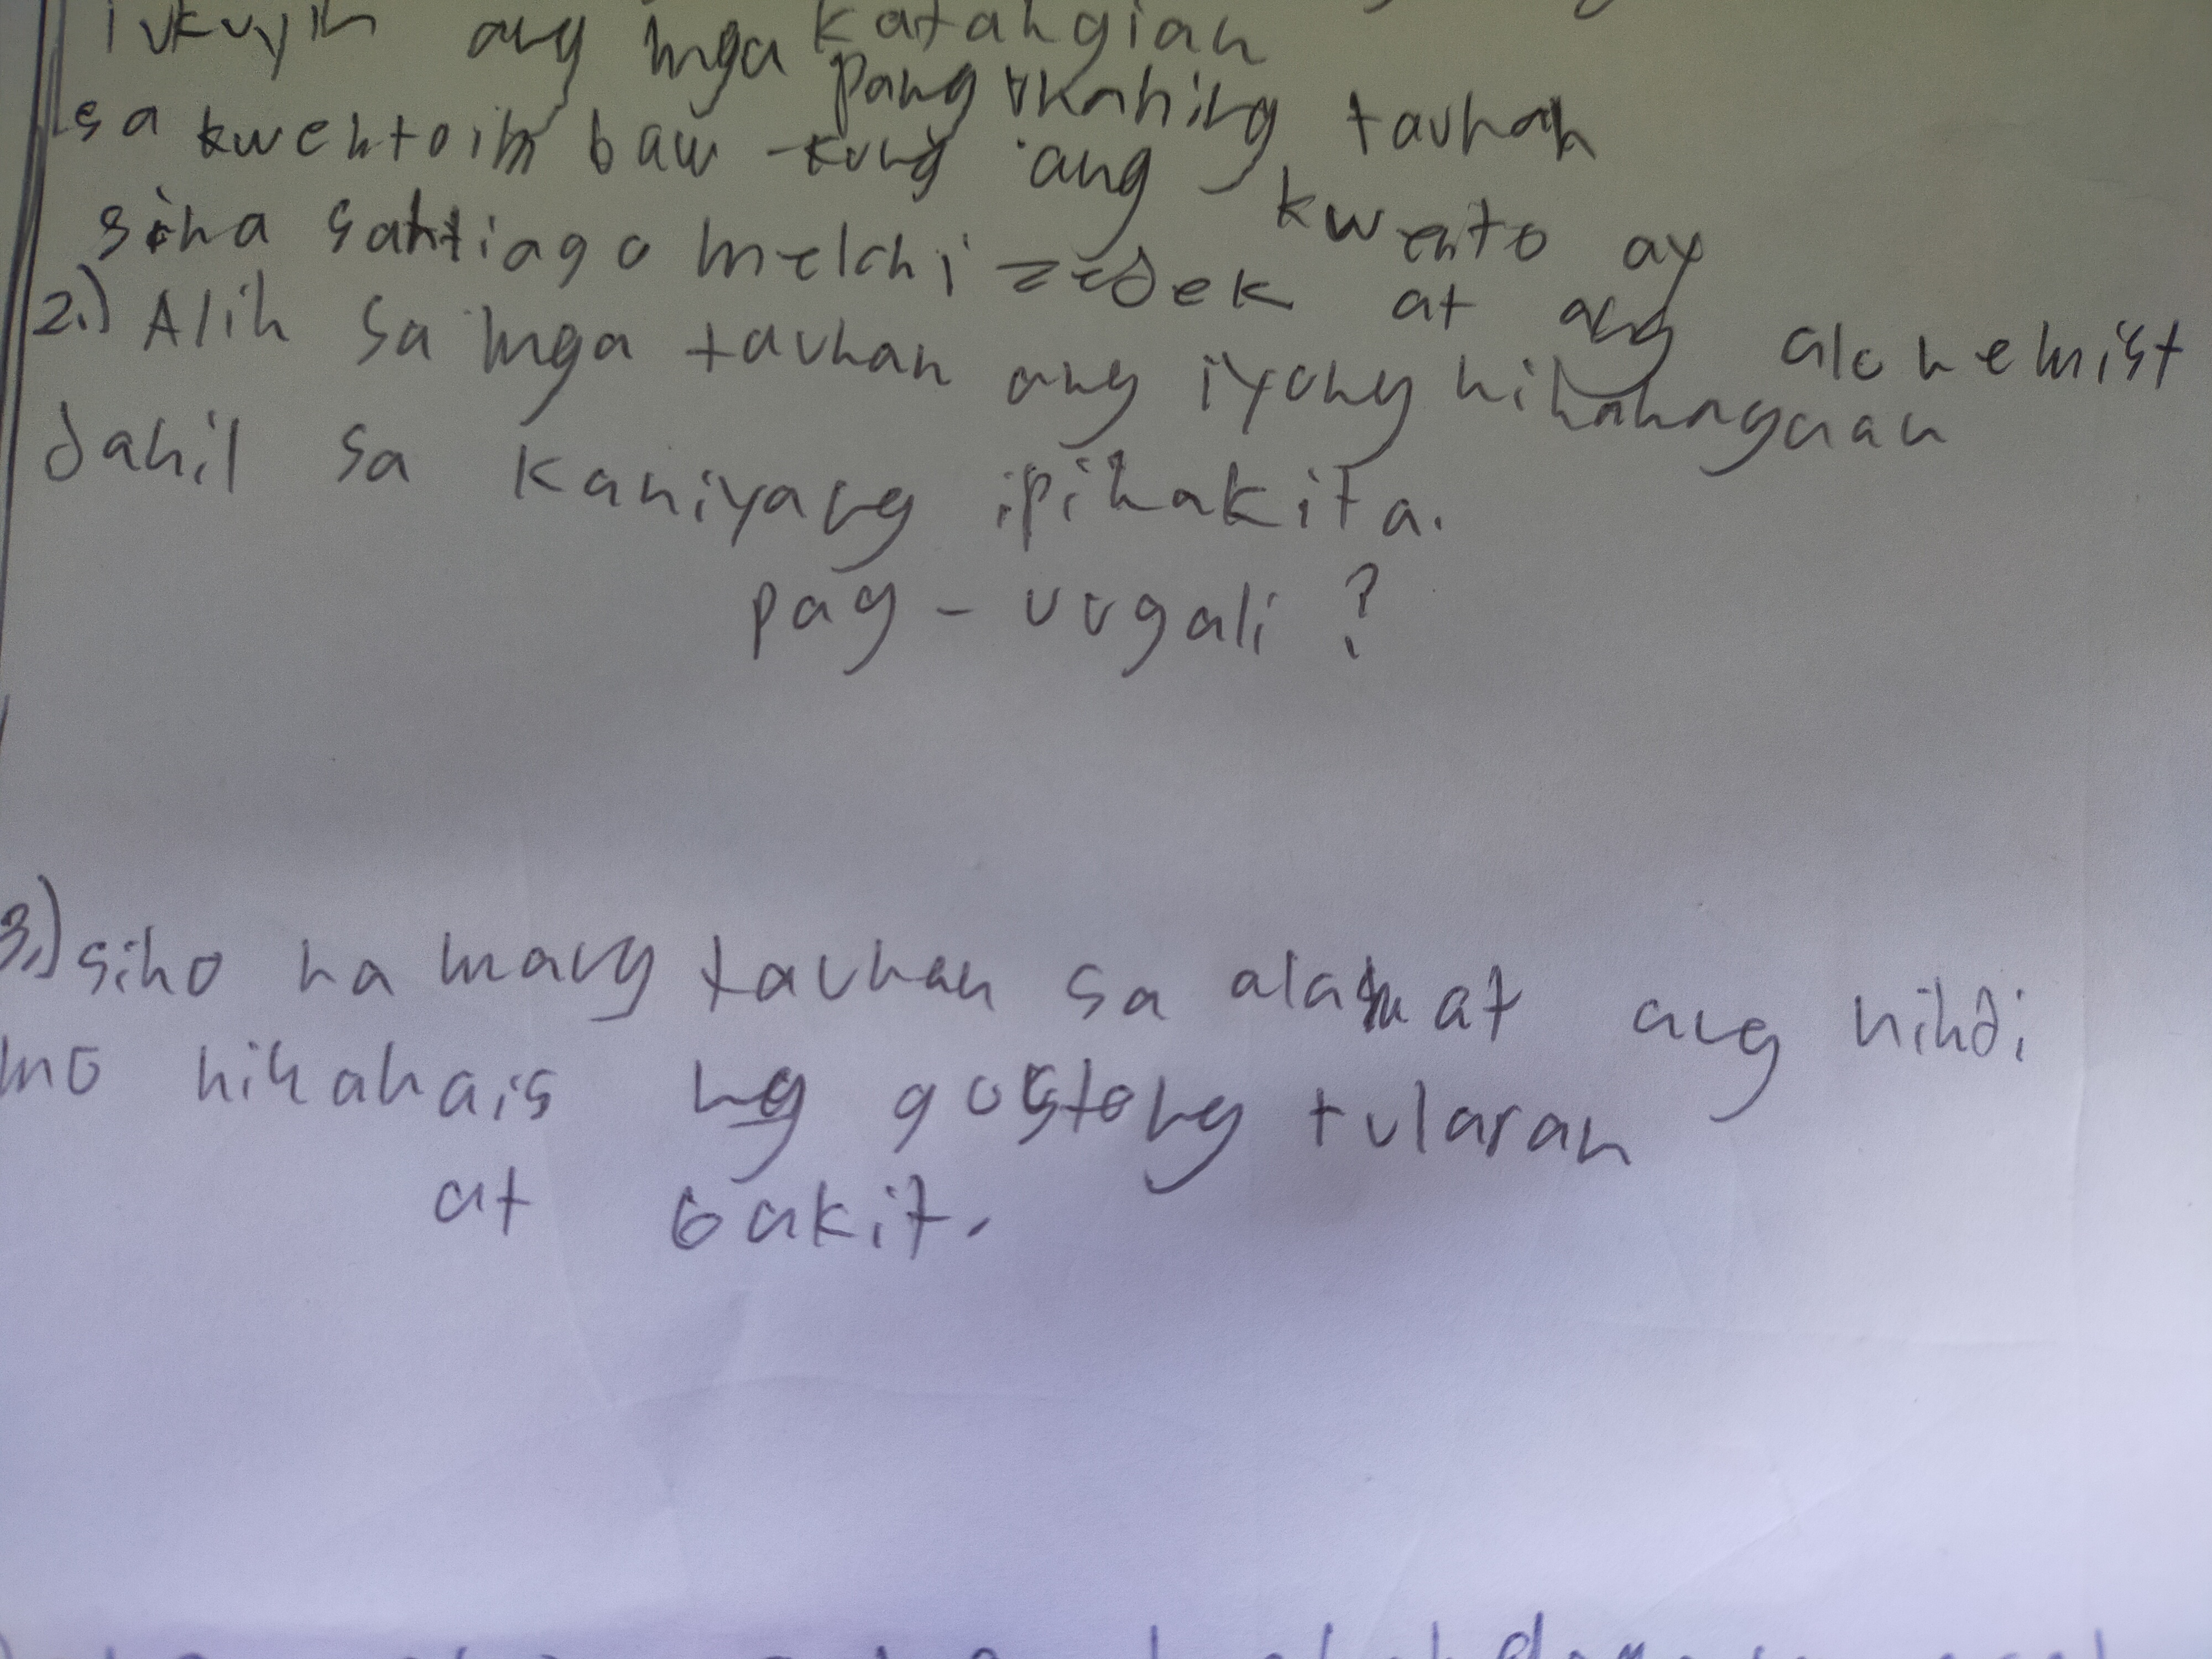 tukuyin ang mga katangian
pangunahing tauhan
sa kwento ang kwento ay
sina santiago melchizedek at ang alchemist
2.) Alin sa mga tauhan ang iyong hinahangaan
dahil sa kaniyang ipinakita.
pag-uugali?
3.) sino namang tauhan sa alamat ang hindi
mo ninanais ng gustong tularan
at bakit.